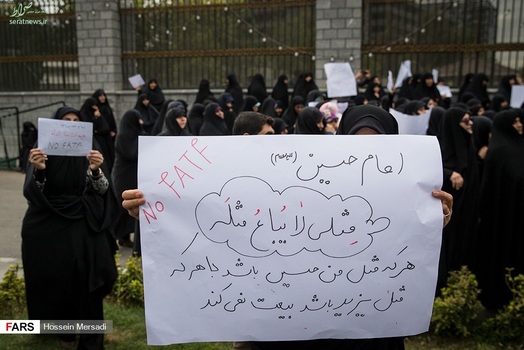 صراط
seratnews.ir
NO FATF
امام حسین (علیه السلام)
NO FATF
مِثلی لَا یُبَاعُ مِثلَه
هر که مثل من حسین باشد با هر که
مثل یزید باشد بیعت نمی کند
FARS
Hossein Mersadi